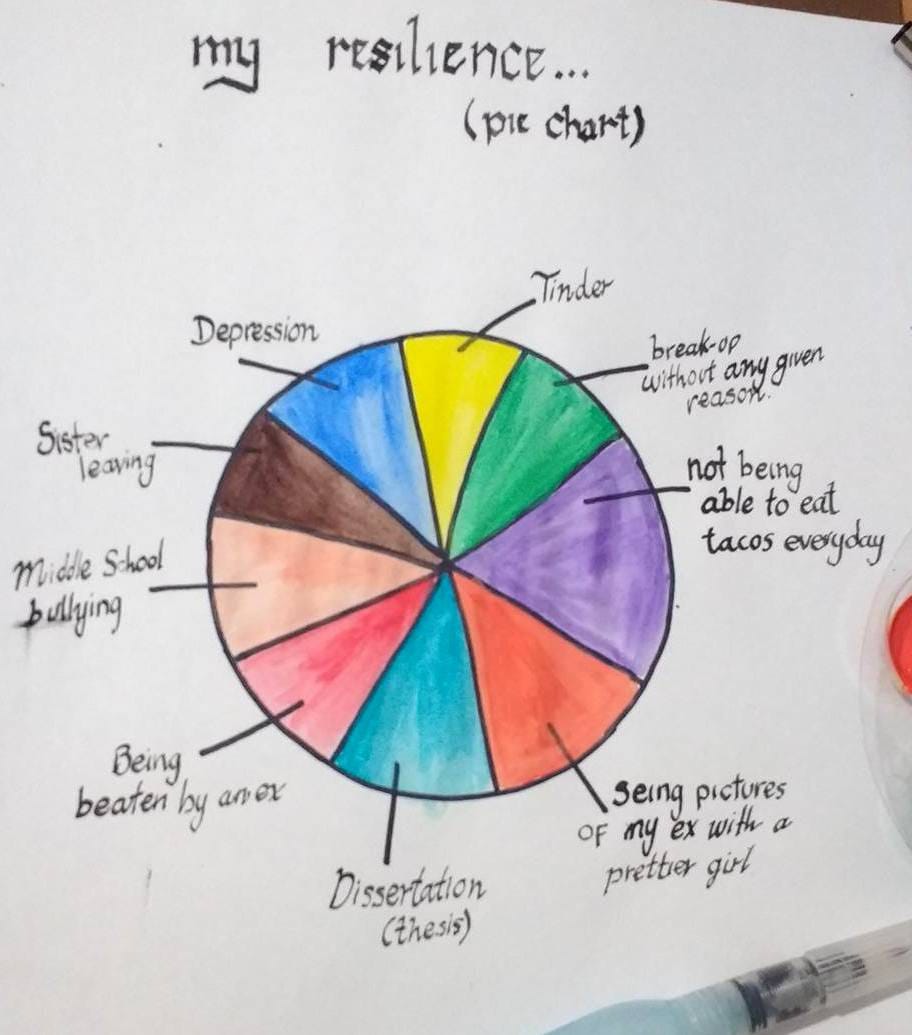 my resilience...
(pie chart)
Tinder
Depression
break-op
without any given
reason.
Sister
leaving
not being
able to eat
tacos everyday
Middle School
bullying
Being
beaten by an ex
Seing pictures
OF my ex with a
prettier girl
Dissertation
(thesis)